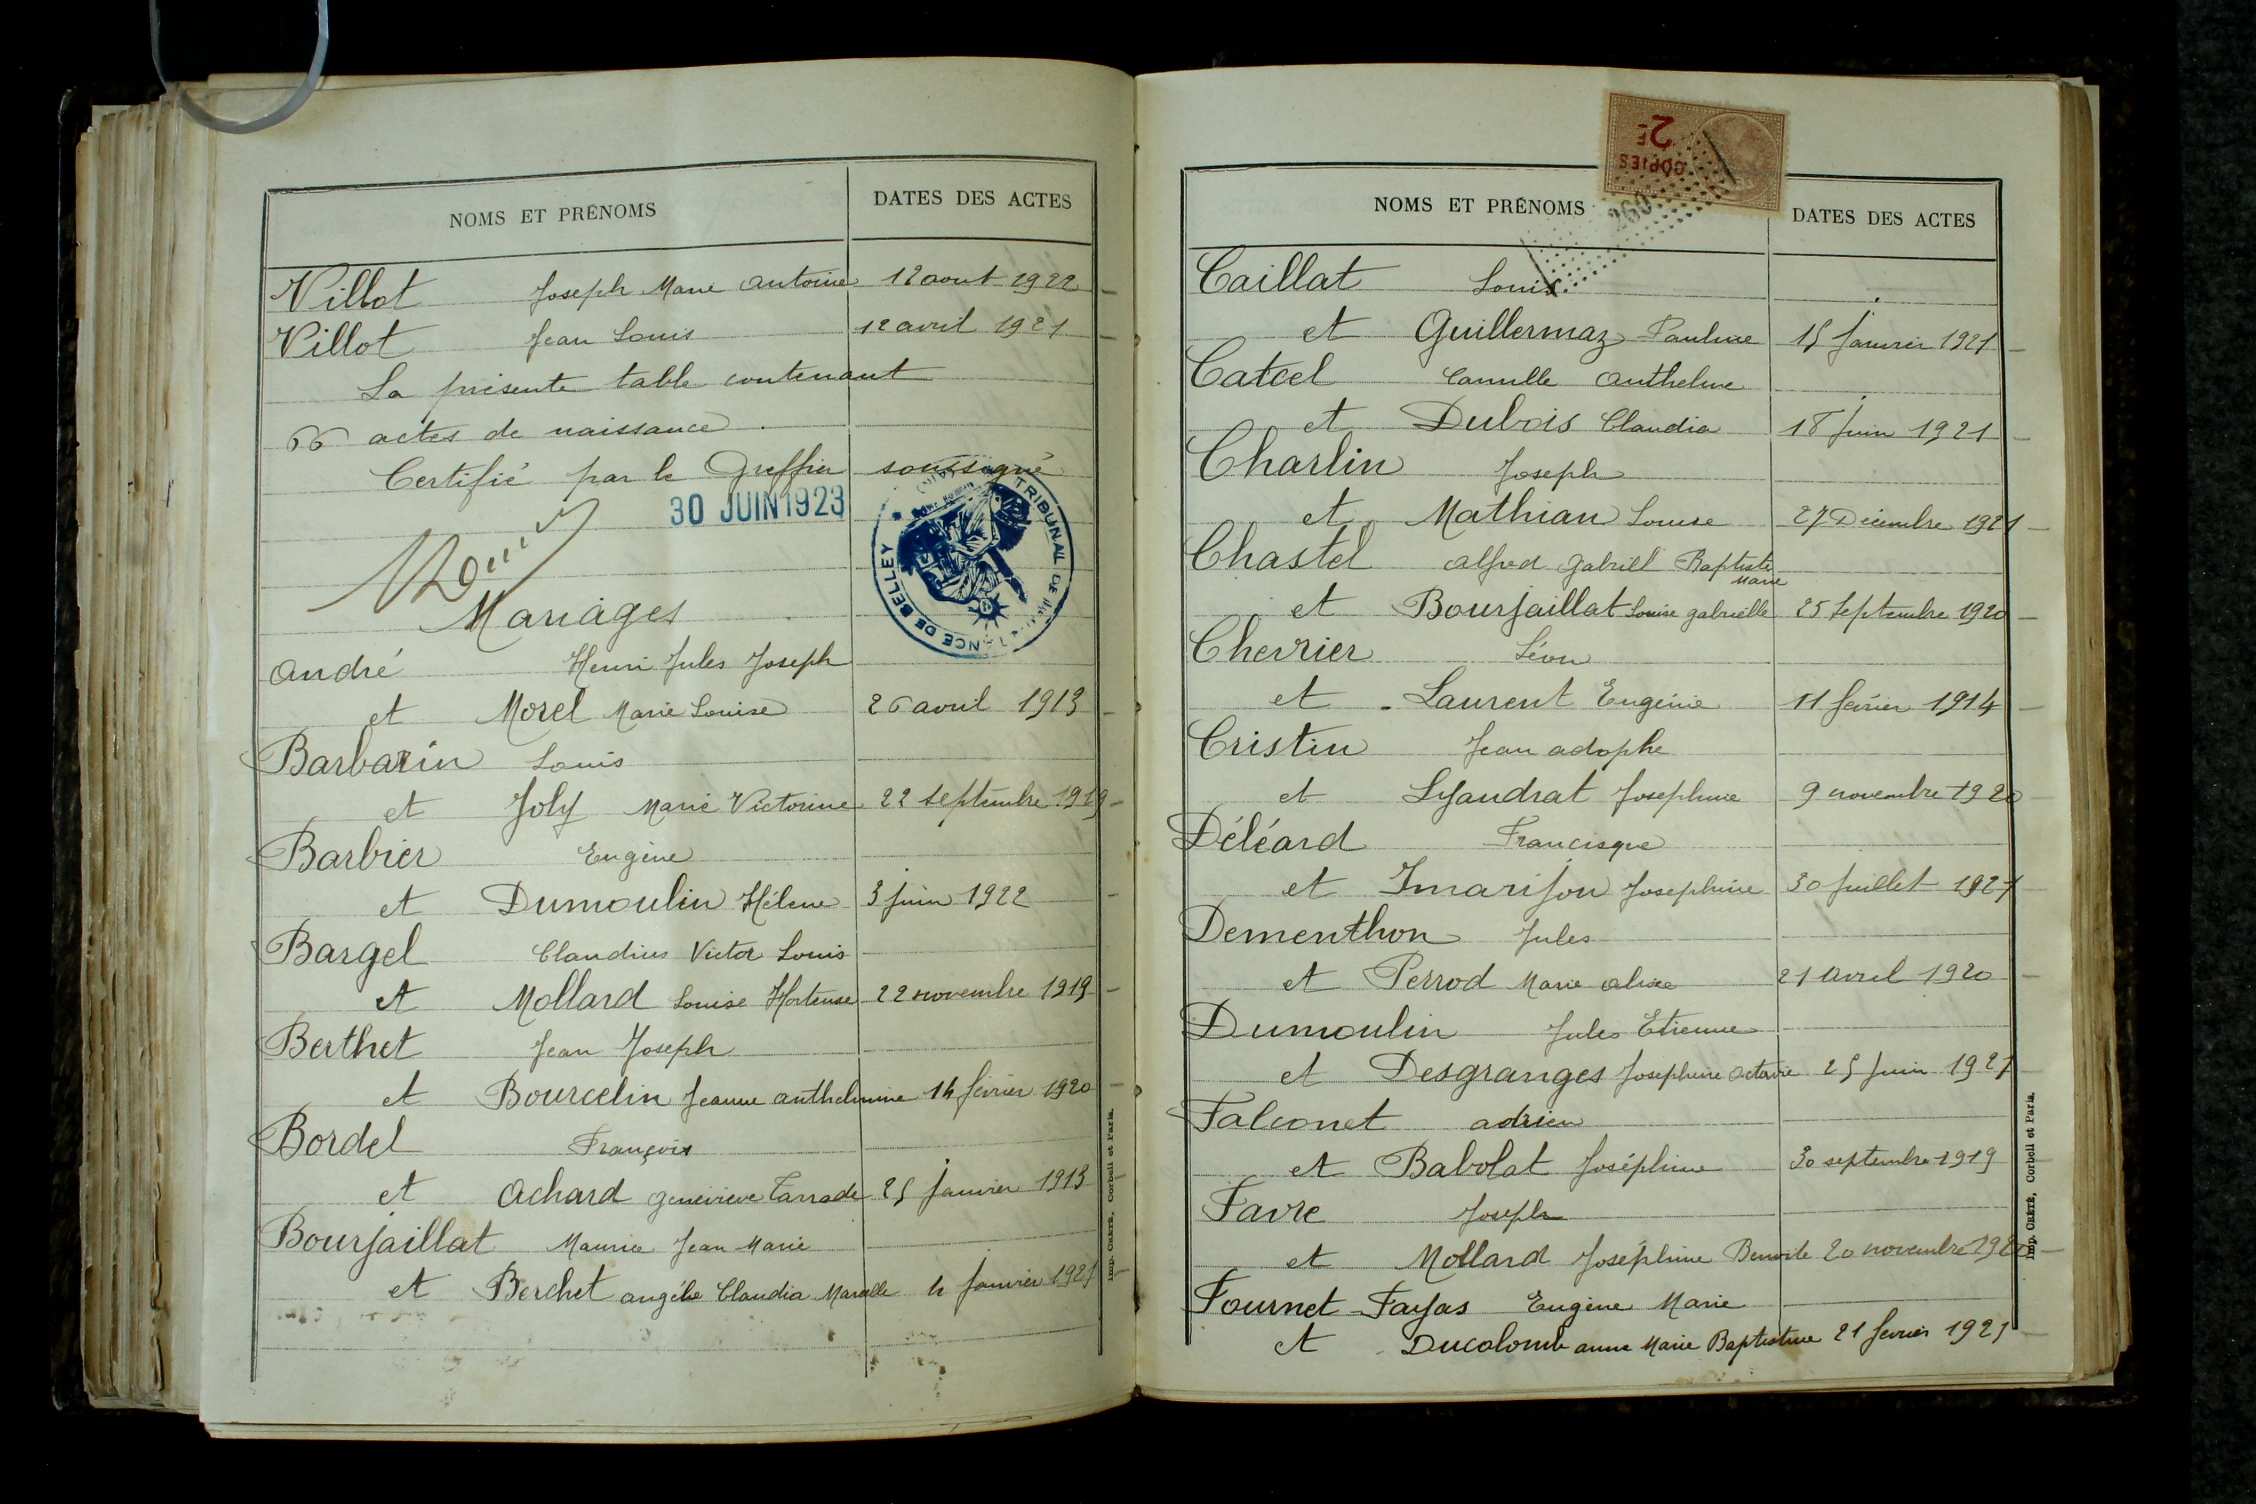 NOMS ET PRÉNOMS DATES DES ACTES
Villot Joseph Marie Antoine 12 aout 1922
Villot Jean Louis 12 avril 1921
La présente table contenant
66 actes de naissance.
Certifié par le Greffier soussigné
30 JUIN 1923
TRIBUNAL DE INSTANCE DE BELLEY
Mariages
André Henri Jules Joseph
et Morel Marie Louise 26 avril 1913
Barbarin Louis
et Joly Marie Victorine 22 septembre 1919
Barbier Eugène
et Dumoulin Hélène 3 juin 1922
Bargel Claudius Victor Louis
et Mollard Louise Hortense 22 novembre 1919
Berthet Jean Joseph
et Bourcelin Jeanne anthelmine 14 février 1920
Bordel François
et Achard Geneviève 25 Janvier 1913
Bourjaillat Maurice Jean Marie
et Berchet angéle Claudia Marcelle 4 Janvier 1921
Imp. CRÉTÉ, Corbeil et Paris.
2F
COPIES
260
NOMS ET PRÉNOMS DATES DES ACTES
Caillat Louis
et Guillermaz Pauline 15 Janvier 1921
Catcel Camille Anthelme
et Dubois Claudia 18 Juin 1921
Charlin Joseph
et Mathian Louise 27 Décembre 1921
Chastel Alfred Gabriel Baptiste
Marie
et Bourjaillat Louise gabrielle 25 Septembre 1920
Chevrier Léon
et Laurent Eugénie 11 février 1914
Cristin Jean adophe
et Lyaudrat Josephine 9 novembre 1920
Déléard Francisque
et Imarijon Josephine 30 Juillet 1921
Dementhon Jules
et Perrod Marie alice 21 avril 1920
Dumoulin Jules Etienne
et Desgranges Josephine Octavie 25 Juin 1921
Falconet adrien
et Babolat Joséphine 30 septembre 1919
Favre Joseph
et Mollard Joséphine Benoite 20 novembre 1920
Fournet-Fayas Eugène Marie
et Ducolomb anne Marie Baptistine 21 fevrier 1921
Imp. CRÉTÉ, Corbeil et Paris.